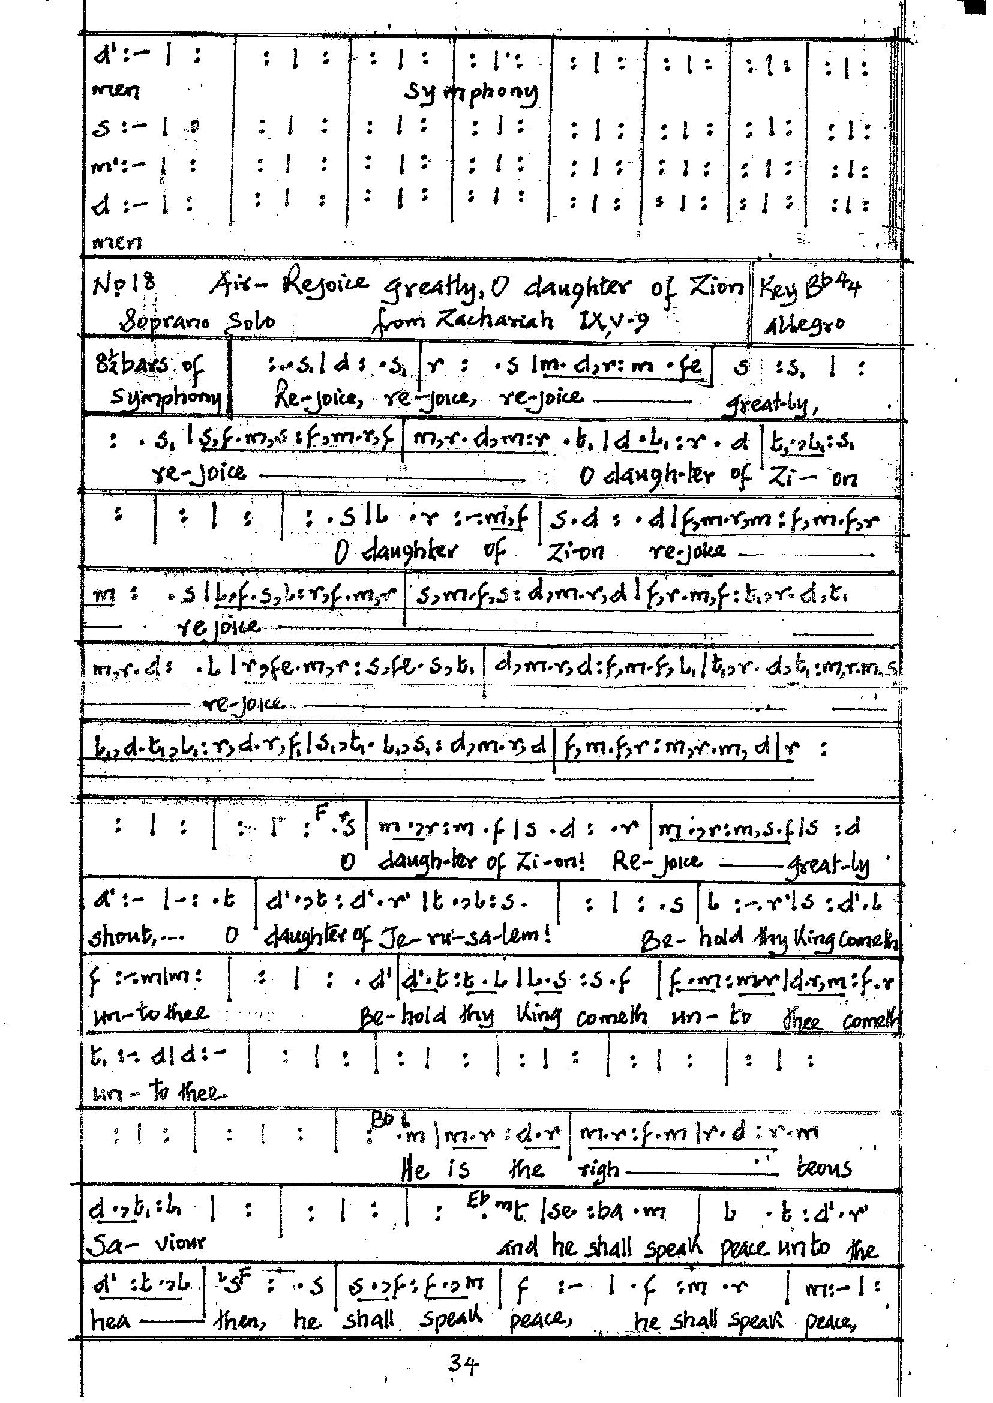 d' :- | : | : | : | : | : | : | : | : | : | : | : | : | : | : | :
men Symphony
s :- | : | : | : | : | : | : | : | : | : | : | : | : | : | : | :
m' :- | : | : | : | : | : | : | : | : | : | : | : | : | : | : | :
d :- | : | : | : | : | : | : | : | : | : | : | : | : | : | : | :
men
No 18 Air- Rejoice greatly, O daughter of Zion Key Bb 4/4
Soprano Solo from Zachariah IX,V-9 Allegro
8½ bars of Symphony :.s₁|d : .s₁|r : .s|m.d,r:m .fe| s :s₁ | :
Re-joice, re-joice, re-joice great-ly,
: .s₁|s,f.m,s:f,m.r,f|m,r.d,m:r .t₁|d.l₁:r.d|t₁.,l₁:s₁
re-joice O daugh-ter of Zi-on
: | : | : | : .s|l .r :-.m,f|s.d : .d|f,m.r,m:f,m.f,r
O daughter of Zi-on re-joice
m : .s|l,f.s,l:r,f.m,r|s,m.f,s:d,m.r,d|f,r.m,f:t₁,r.d,t₁
rejoice
m,r.d: .l|r,fe.m,r:s,fe.s,t₁|d,m.r,d:f,m.f,l₁|t₁,r.d,t₁:m,r.m,s
re-joice
t₁,d.t₁,l₁:r,d.r,f₁|s₁,t₁.l₁,s₁:d,m.r,d|f,m.f,r:m,r.m,d|r :
: | : | : | : F .s|m.,r:m.f|s.d : .r|m.,r:m,s.f|s :d
O daugh-ter of Zi-on! Re-joice great-ly
d' :- |- : .t|d'.,t:d'.r'|t.,l:s. | : | : .s|l :-.r'|s :d'.l
shout,... O daughter of Je-ru-sa-lem! Be-hold thy King cometh
f :-.m|m: | : | : .d'|d'.t:t.l|l.s :s.f |f.m:m.r|d.r,m:f.r
un-to thee Be-hold thy King cometh un-to thee cometh
t₁ :-. d|d :- | : | : | : | : | : | : | : | : | : | :
un-to thee
: | : | : | : | : Bb .m|m.r :d.r|m.r:f.m|r.d :r.m
He is the righ teous
d.,t₁:l₁ | : | : | : | : Eb .mt|se :ba.m | l .t:d'.r'
Sa-viour and he shall speak peace unto the
d' :t.,l| F : .s|s.,f:f.,m| f :- |.f :m.r | m:- | :
hea then, he shall speak peace, he shall speak peace,
34